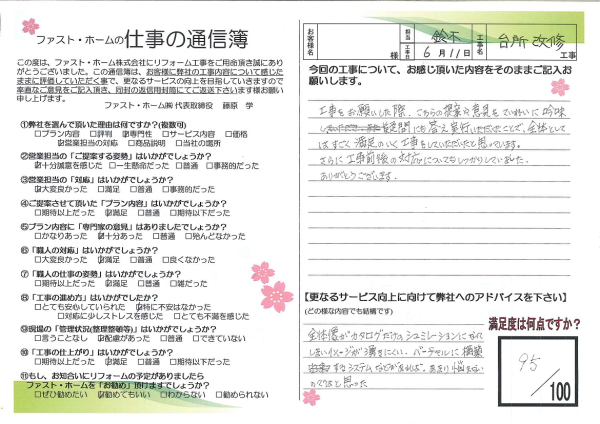 ファスト・ホームの仕事の通信簿
この度は、ファスト・ホーム株式会社にリフォーム工事をご用命頂き誠にあり
がとうございました。この通信簿は、お客様に弊社の工事内容について感じた
ままに評価していただく事で、更なるサービスの向上を目指していきますので
率直なご意見をご記入頂き、同封の返信用封筒にてご返送下さいます様お願い
申し上げます。
ファスト・ホーム㈱ 代表取締役 藤原 学
①弊社を選んで頂いた理由は何ですか?(複数可)
□プラン内容 □評判 ☑専門性 □サービス内容 □価格
☑営業担当者の対応 □商品説明 □当社の場所
②営業担当の「ご提案する姿勢」はいかがでしょうか?
☑十分誠意を感じた □一生懸命だった □普通 □事務的だった
③営業担当の「対応」はいかがでしょうか?
☑大変良かった □満足 □普通 □事務的だった
④ご提案させて頂いた「プラン内容」はいかがでしょうか?
□期待以上だった ☑満足 □普通 □期待以下だった
⑤プラン内容に「専門家の意見」はありましたでしょうか?
□かなりあった ☑十分あった □普通 □殆んどなかった
⑥「職人の対応」はいかがでしょうか?
□大変良かった ☑満足 □普通 □良くなかった
⑦「職人の仕事の姿勢」はいかがでしょうか?
□期待以上だった ☑満足 □普通 □雑だった
⑧「工事の進め方」はいかがでしたか?
□とても安心していられた ☑特に不安はなかった
□対応に少しストレスを感じた □とても不満を感じた
⑨現場の「管理状況(整理整頓等)」はいかがでしょうか?
□言うことなし ☑配慮があった □普通 □できていない
⑩「工事の仕上がり」はいかがでしょうか?
□期待以上だった ☑満足 □普通 □期待以下だった
⑪もし、お知合いにリフォームの予定がありましたら
ファスト・ホームを「お勧め」頂けますでしょうか?
□ぜひ勧めたい ☑勧めてもいい □わからない □勧められない
お客様名 様 担当 鈴木 工事日 6月11日 工事名 台所改修 工事
今回の工事について、お感じ頂いた内容をそのままご記入お
願いします。
工事をお願いした際、こちらの提案や意見をていねいに吟味
疑問にも答え実行いただいたことで、全体として
はすごく満足のいく工事をしていただいたと思っています。
さらに工事前後の対応についてもしっかりしていました。
ありがとうございます。
【更なるサービス向上に向けて弊社へのアドバイスを下さい】
(どの様な内容でも結構です)
全体像がカタログだけのシュミレーションに
しまいイメージが湧きにくい。バーチャルに構築
するシステムなどがあれば、あまり悩まない
と思った
満足度は何点ですか?
95/100